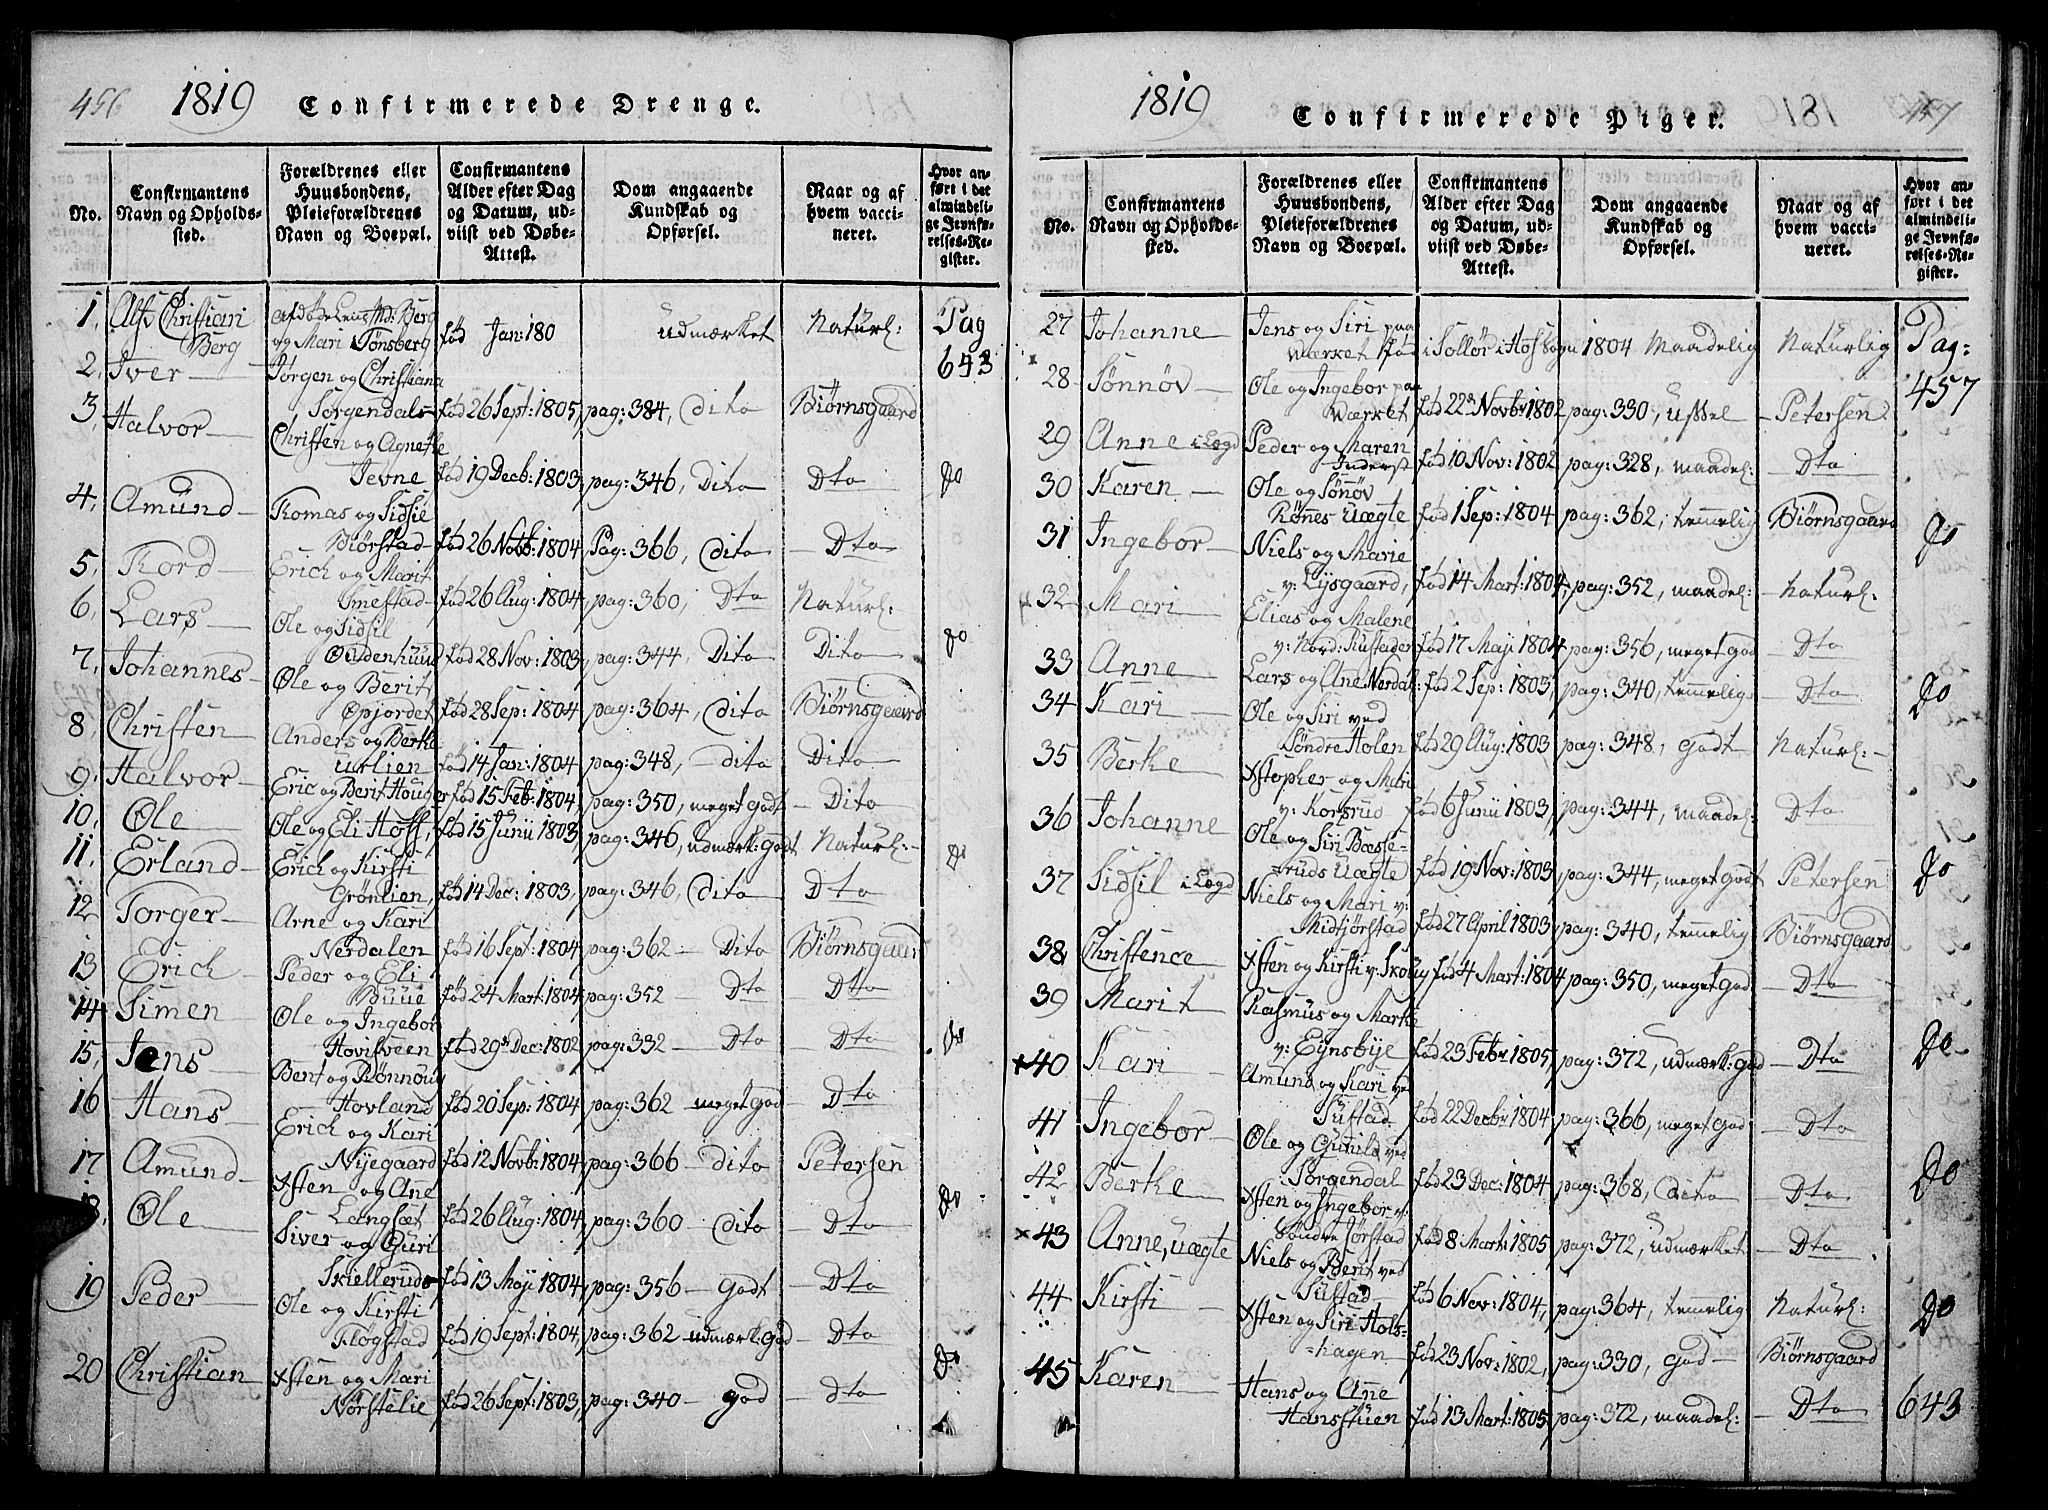 456 1819 Confirmerede Drenge.
No.
Confirmantens Navn og Opholds-sted.
Forældrenes eller Huusbondens, Pleieforældrenes Navn og Boepæl.
Confirmantens Alder efter Dag og Datum, ud-viist ved Døbe-Attest.
Dom angaaende Kundskab og Opførsel.
Naar og af hvem vacci-neret.
Hvor an-ført i det almindeli-ge Jevnfø-relses-Re-gister.
1, Alf Christian afdøde Leut: Md: Berg Pag
Berg og Mari Tønsberg fød Jan: 180 udmærket Naturl:
2, Iver Jørgen og Christiana 643
Sorgendals fød 26 Sept: 1805, pag: 384, dito Biørnsgaard
3, Halvor Christen og Agnethe
Jevne fød 19 Decb: 1803, pag: 346, Dito Dto do
4, Amund Thomas og Sidsie
Biørstad fød 26 Novb: 1804, Pag: 366, dito Dto
5, Thord Erich og Marit
Imestad fød 26 Aug: 1804, pag: 360, Dto Naturl:
6, Lars Ole og Sidsil
Oudenhuud fød 28 Nov: 1803, pag: 344, Dito Dito do
7, Johannes Ole og Berit
Opjordet fød 28 Sep: 1804 pag: 364, dito Biørnsgaard
8, Christen Anders og Berthe
Uvlien fød 14 Jan: 1804 pag: 348, dito Dito
9, Halvor Eric og Berit Houger fød 15 Feb: 1804, pag: 350, meget godt Dito
10, Ole Ole og Eli Hoff, fød 15 Junii 1803 pag: 346, udmærk: godt Naturl:
11, Erland Erich og Kirsti do
Grønlien, fød 14 Dec: 1803, pag: 346, Dito Dto
12 Torger Arne og Kari
Nerdalen fød 16 Sept: 1804 pag: 362 Dito Biørnsgaard
13 Erich Peder og Eli
Buue fød 24 Mart: 1804, pag: 352 Dto Dto
14 Simen Ole og Ingebor
Hovisveen fød 29 Dec: 1802 pag: 332 Dto Dto do
15, Jens Bent og Rønnoug
Hovland fød 20 Sep: 1804 pag: 362 meget god Dto
16 Hans Erich og Kari
Nyegaard fød 12 Novb: 1804 pag: 366 dito Petersen
17 Amund Xsten og Ane
Langsæt fød 26 Aug: 1804, pag: 360 dito Dto do
18, Ole Siver og Guri
Skiellerude fød 13 Maji 1804, pag: 356 godt Dto
19 Peder Ole og Kirsti
Fløgstad fød 19 Sept: 1804, pag: 362 udmærk: god Dto
20 Christian Xsten og Mari do
Nørstelie fød 26 Sept: 1803, pag: 340 god Dto
1819 Confirmerede Piger.
No.
Confirmantens Navn og Opholds-sted.
Forældrenes eller Huusbondens, Pleieforældrenes Navn og Boepæl.
Confirmantens Alder efter Dag og Datum, ud-viist ved Døbe-Attest.
Dom angaaende Kundskab og Opførsel.
Naar og af hvem vacci-neret.
Hvor an-ført i det almindeli-ge Jevnfø-relses-Re-gister.
27 Johanne Jens og Siri paa
Værket fød i Sollør i Hof Sogn 1804 maadelig Naturlig Pag:
28 Sønnøv Ole og Ingebor paa 457
Værket, fød 22 Novbr 1802 pag: 330, ussel Petersen
29 Anne i Lægd Peder og Maren
Inderst fød 10 Nov: 1802 pag: 328, maadel: Dto
30 Karen Ole og Sønøv
Rønes Uægte fød 1 Sep: 1804 pag: 362, temmelig Biørnsgaard
31 Ingebor Niels og Marie do
v: Lysgaard, fød 14 Mart: 1804, pag: 352, maadel: Naturl:
32 Mari Elias og Malene
v: Nord: Rustader fød 17 Maji 1804 pag: 356, meget god Dto
33 Anne Lars og Ane Nerdal: fød 2 Sep: 1803, pag: 340, temmelig Dto do
34 Kari Ole og Siri ved
Søndre Holen fød 29 Aug: 1803 pag: 348, godt Naturl:
35 Berthe Xstopher og Mari
v: Korsrud fød 6 Junii 1803, pag: 344, maadel: Dto
36 Johanne Ole og Siri Bæsse-
ruds Uægte fød 19 Nov: 1803 pag: 344, meget godt Petersen do
37 Sidsil i Lægd Niels og Mari v:
Midtjørstad fød 27 April 1803, pag: 340, temmelig Biørnsgaard
38 Christence Xsten og Kirsti v: Skoug fød 4 Mart: 1804 pag: 350, meget god Dto
39 Marit Rasmus og Marthe
v: Eynsbye fød 23 Febr 1805, pag: 372, udmærk: god Dto do
40 Kari Amund og Kari ved
Sustad fød 22 Decbr 1804, pag: 366, meget god Dto
41 Ingebor Ole og Gunild ved
Sorgendal fød 23 Dec: 1804 pag: 368, dito Dto do
42 Berthe Xsten og Ingebor v:
Søndre Jørstad fød 8 Mart: 1805 pag: 372, udmærket Dto
43 Anne, uægte Niels og Berit ved
Sustad fød 6 Nov: 1804, pag: 364, temmelig Naturl: do
44 Kirsti Xsten og Siri Hols-
hagen fød 23 Nov: 1802, pag: 330, god Biørnsgaard
45 Karen Hans og Ane
Hansstuen fød 13 Mart: 1805, pag: 372, maadel: Dto 643